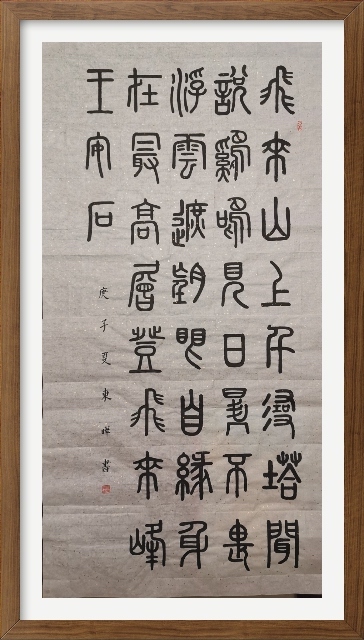 飛來山上千尋塔聞
說雞鳴見日昇不畏
浮雲遮望眼自緣身
在最高層登飛來峰
王安石
庚子夏東書